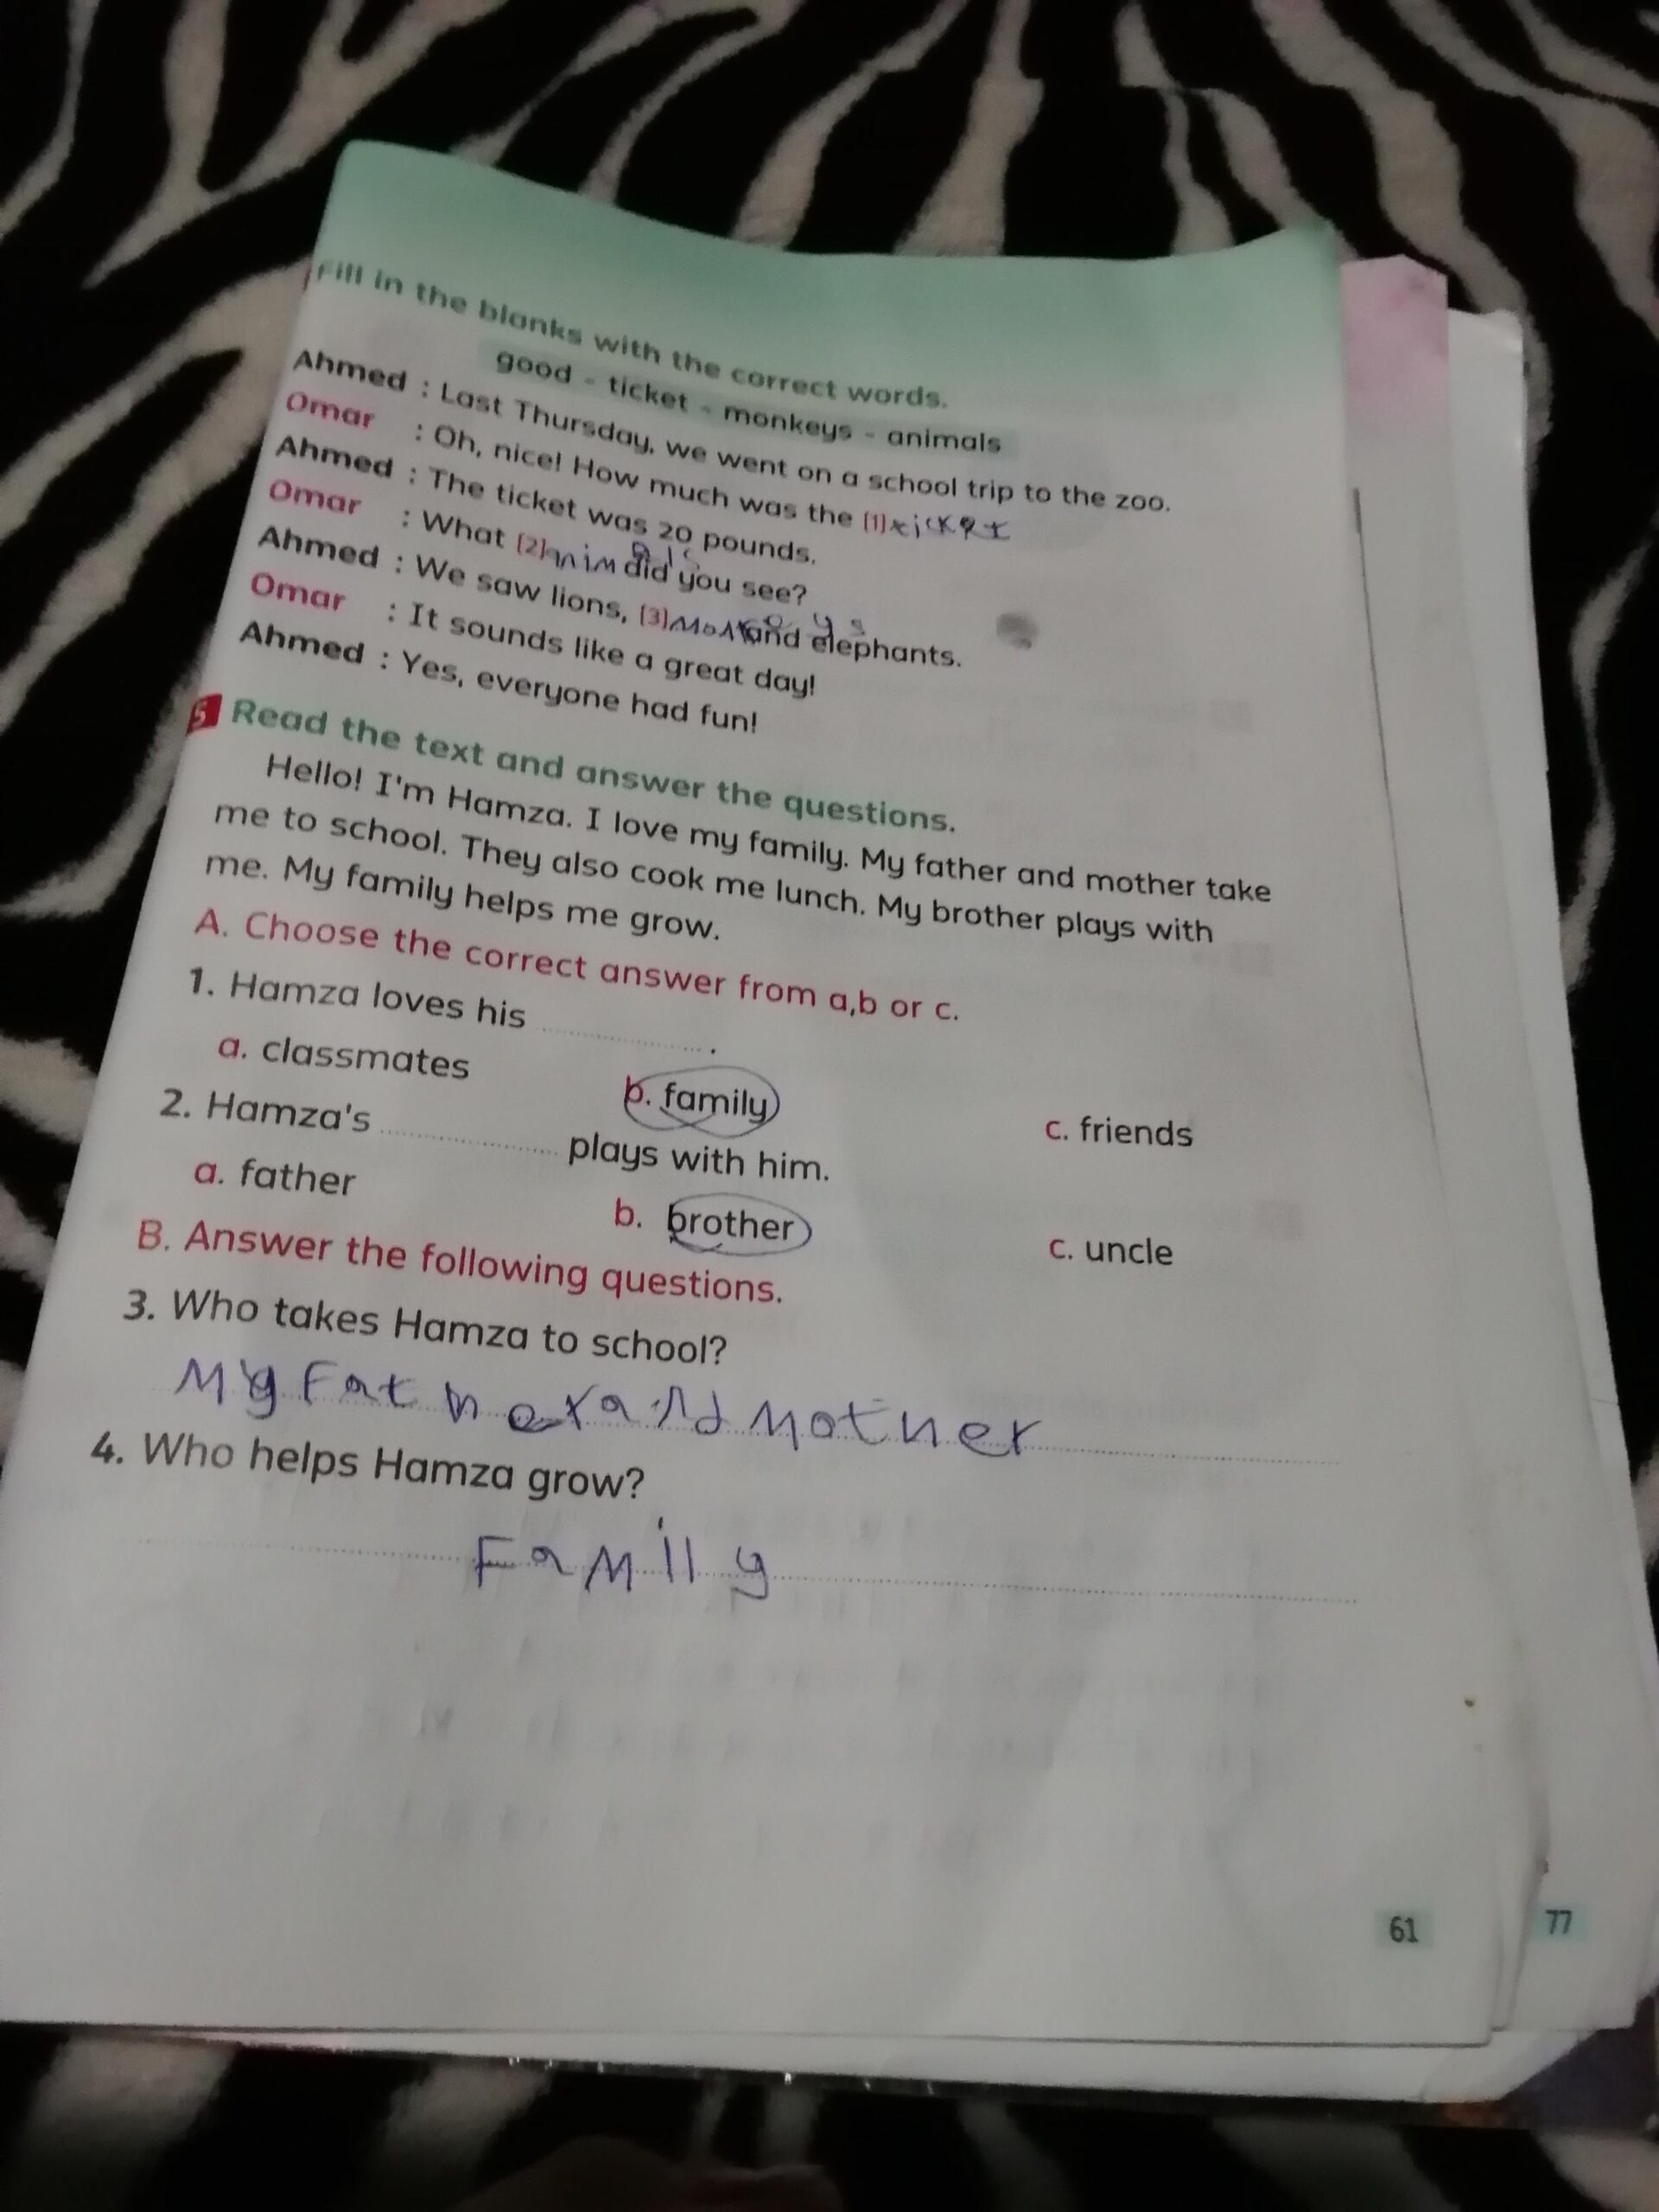 Fill in the blanks with the correct words.
good - ticket - monkeys - animals
Ahmed : Last Thursday, we went on a school trip to the zoo.
Omar : Oh, nice! How much was the (1) ticket
Ahmed : The ticket was 20 pounds.
Omar : What (2) animals did you see?
Ahmed : We saw lions, (3) Monkeys and elephants.
Omar : It sounds like a great day!
Ahmed : Yes, everyone had fun!
5 Read the text and answer the questions.
Hello! I'm Hamza. I love my family. My father and mother take
me to school. They also cook me lunch. My brother plays with
me. My family helps me grow.
A. Choose the correct answer from a,b or c.
1. Hamza loves his .................... .
a. classmates b. family c. friends
2. Hamza's .................... plays with him.
a. father b. brother c. uncle
B. Answer the following questions.
3. Who takes Hamza to school?
My Father and Mother
4. Who helps Hamza grow?
Family
61
77